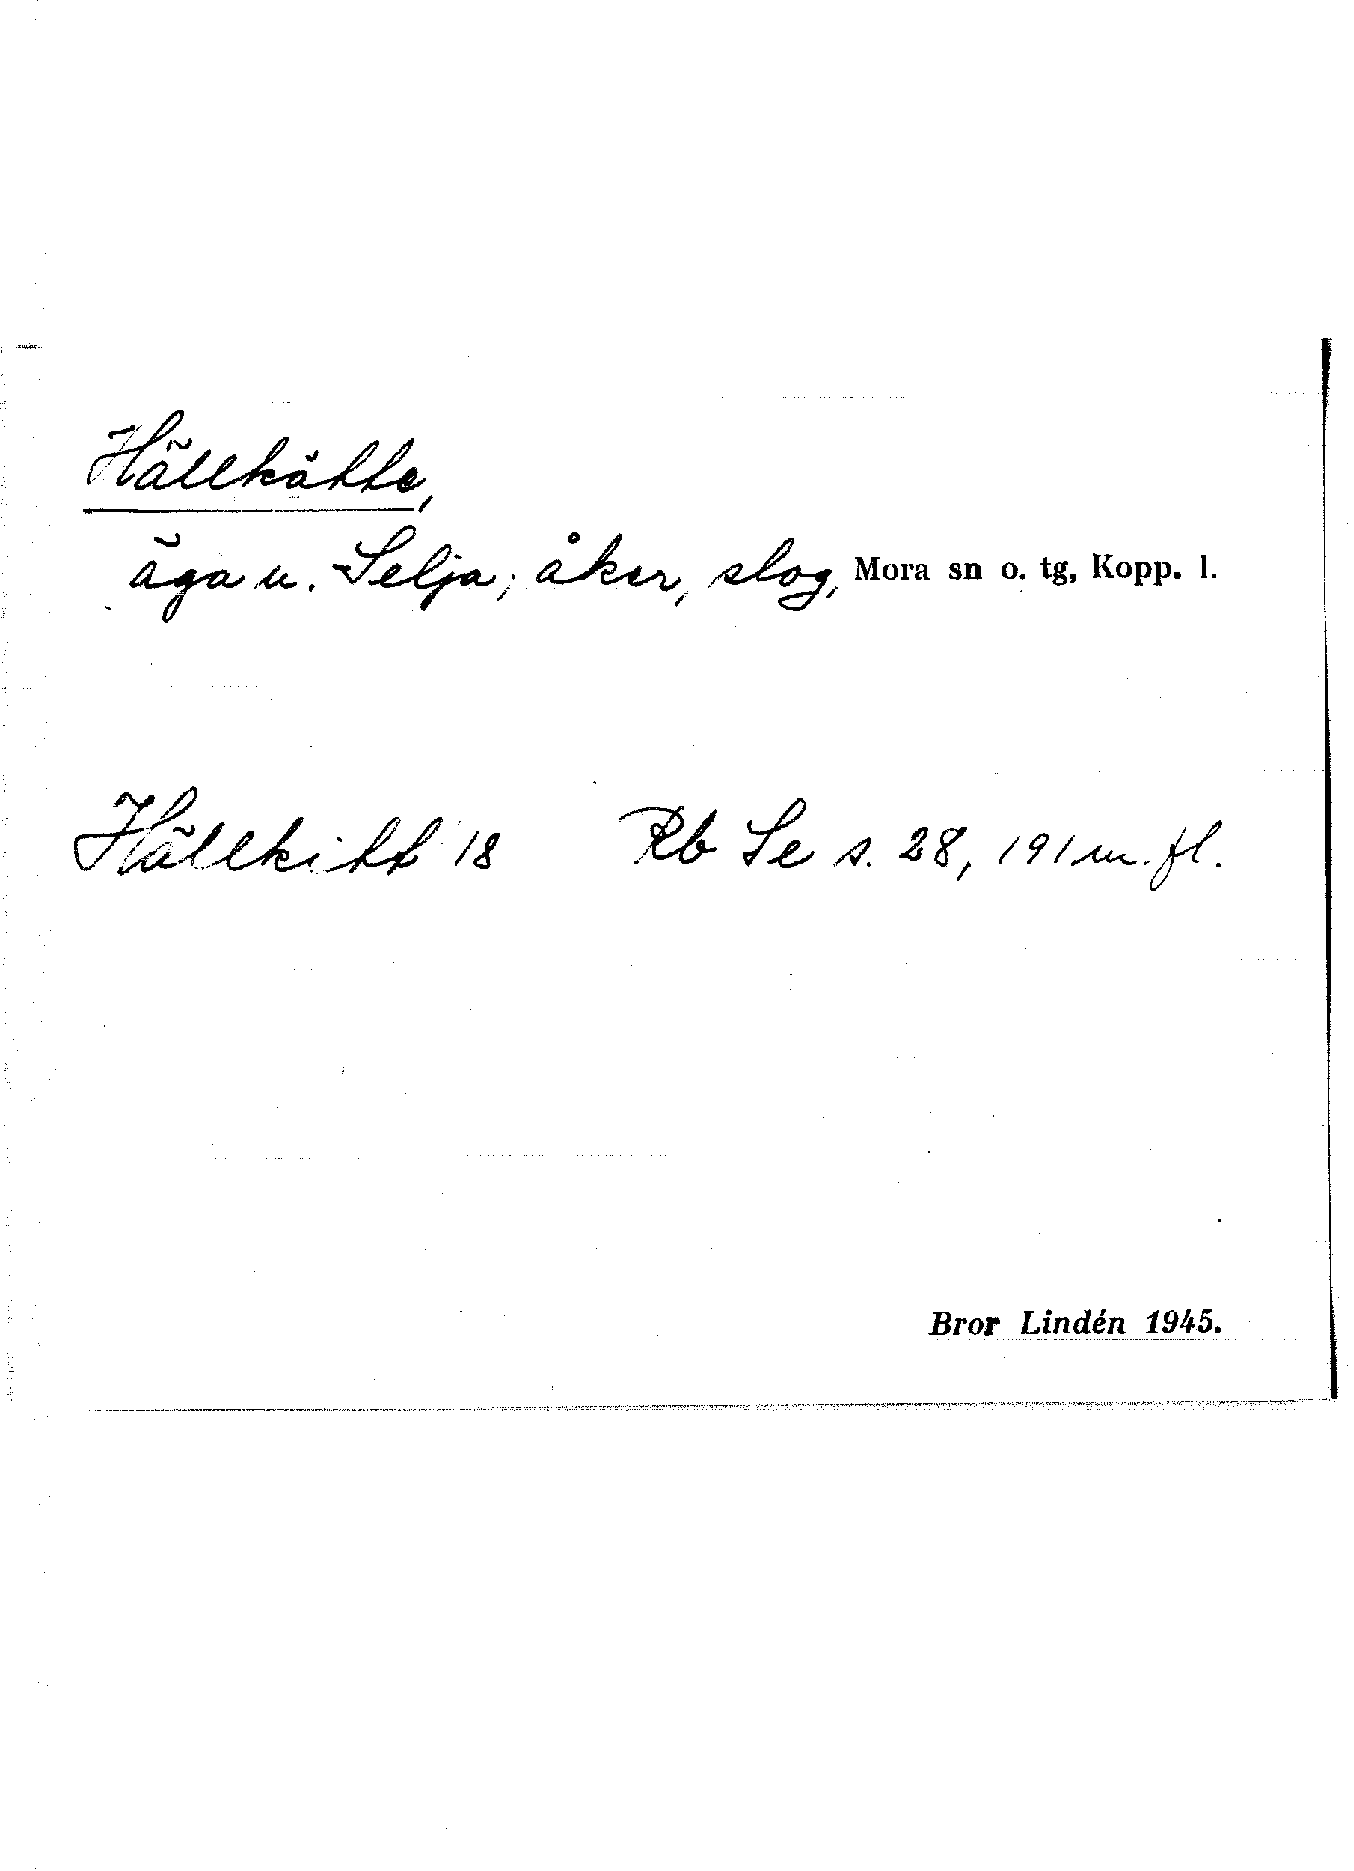 Hällkätte,
äga u. Selja; åker, slog, Mora sn o. tg, Kopp. l.
Hällkitt 18 Rb Se s. 28, 191 m. fl.
Bror Lindén 1945.